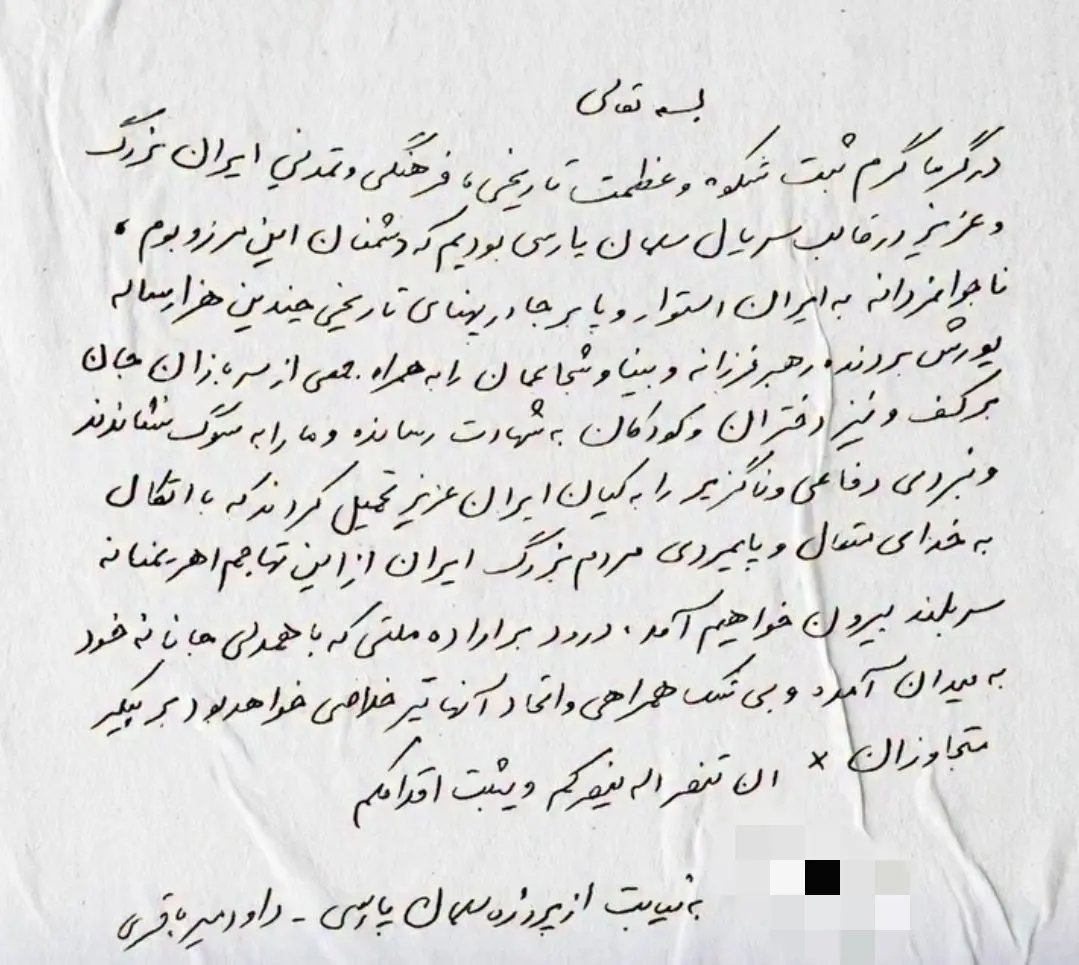 بسمه تعالی
در گرماگرم ثبت شکوه و عظمت تاریخی، فرهنگی و تمدنی ایران بزرگ
و عزیز در قالب سریال سلمان پارسی بودیم که دشمنان این مرز و بوم،
ناجوانمردانه به ایران استوار و پا بر جا در پهنای تاریخی چندین هزار ساله
یورش بردند، رهبر فرزانه و بینا و شجاعمان را به همراه جمعی از سربازان جان
بر کف و نیز دختران و کودکان به شهادت رسانده و ما را به سوگ نشاندند
و نبردی دفاعی و ناگزیر را به کیان ایران عزیز تحمیل کردند که با اتکال
به خدای متعال و پایمردی مردم بزرگ ایران از این تهاجم اهریمنانه
سربلند بیرون خواهیم آمد. درود بر اراده ملتی که با همدلی جانانه خود
به میدان آمده و بی شک همراهی و اتحاد آنها تیر خلاصی خواهد بود بر پیکر
متجاوزان * ان تنصر اله ینصرکم و یثبت اقدامکم
به نیابت از پروژه سلمان پارسی - داود میرباقری